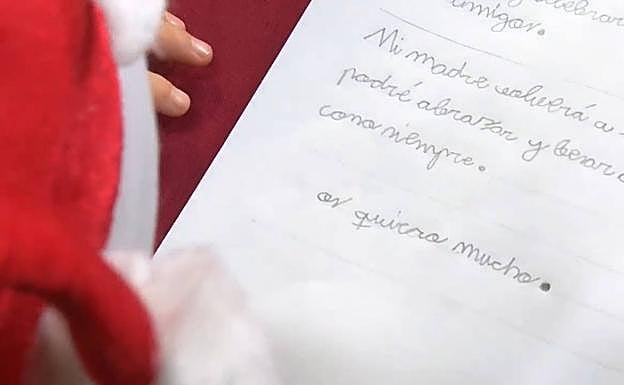 amigos.
Mi madre volverá a
podré abrazar y besar a
como siempre.
os quiero mucho.